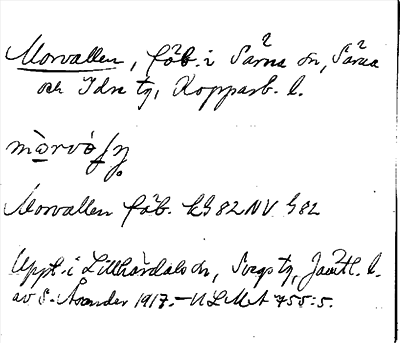 Morvallen, fäb. i Särna sn, Särna
och Idre tg, Kopparb. l.
Morvallen fäb. EB 82 NV G 82
Uppt. i Lillhärdals sn, Svegs tg, Jämtl. l.
av S. Åsander 1917. – ULMA 755:5.